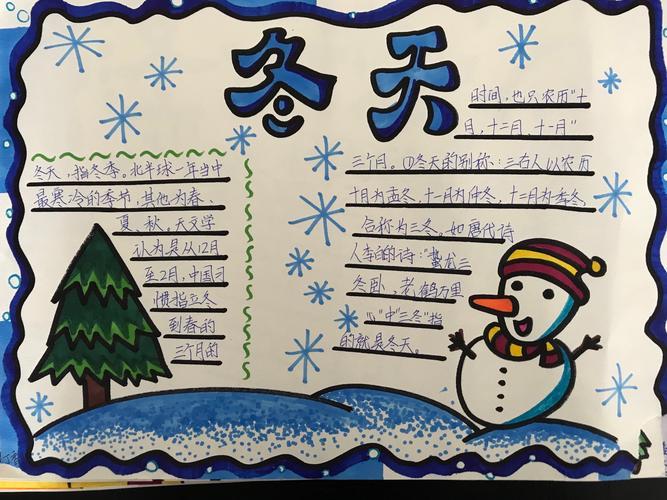 冬天
冬天，指冬季。北半球一年当中
最寒冷的季节，其他为春、
夏、秋。天文学
认为是从12月
至2月，中国习
惯指立冬
到春的
三个月的
时间，也只农历"十
月，十二月，十一月"
三个月。①冬天的别称：三古人以农历
十月为孟冬，十一月为仲冬，十二月为季冬，
合称为三冬。如唐代诗
人李的诗："蛰龙三
冬卧，老鹤万里
心"中"三冬"指
的就是冬天。